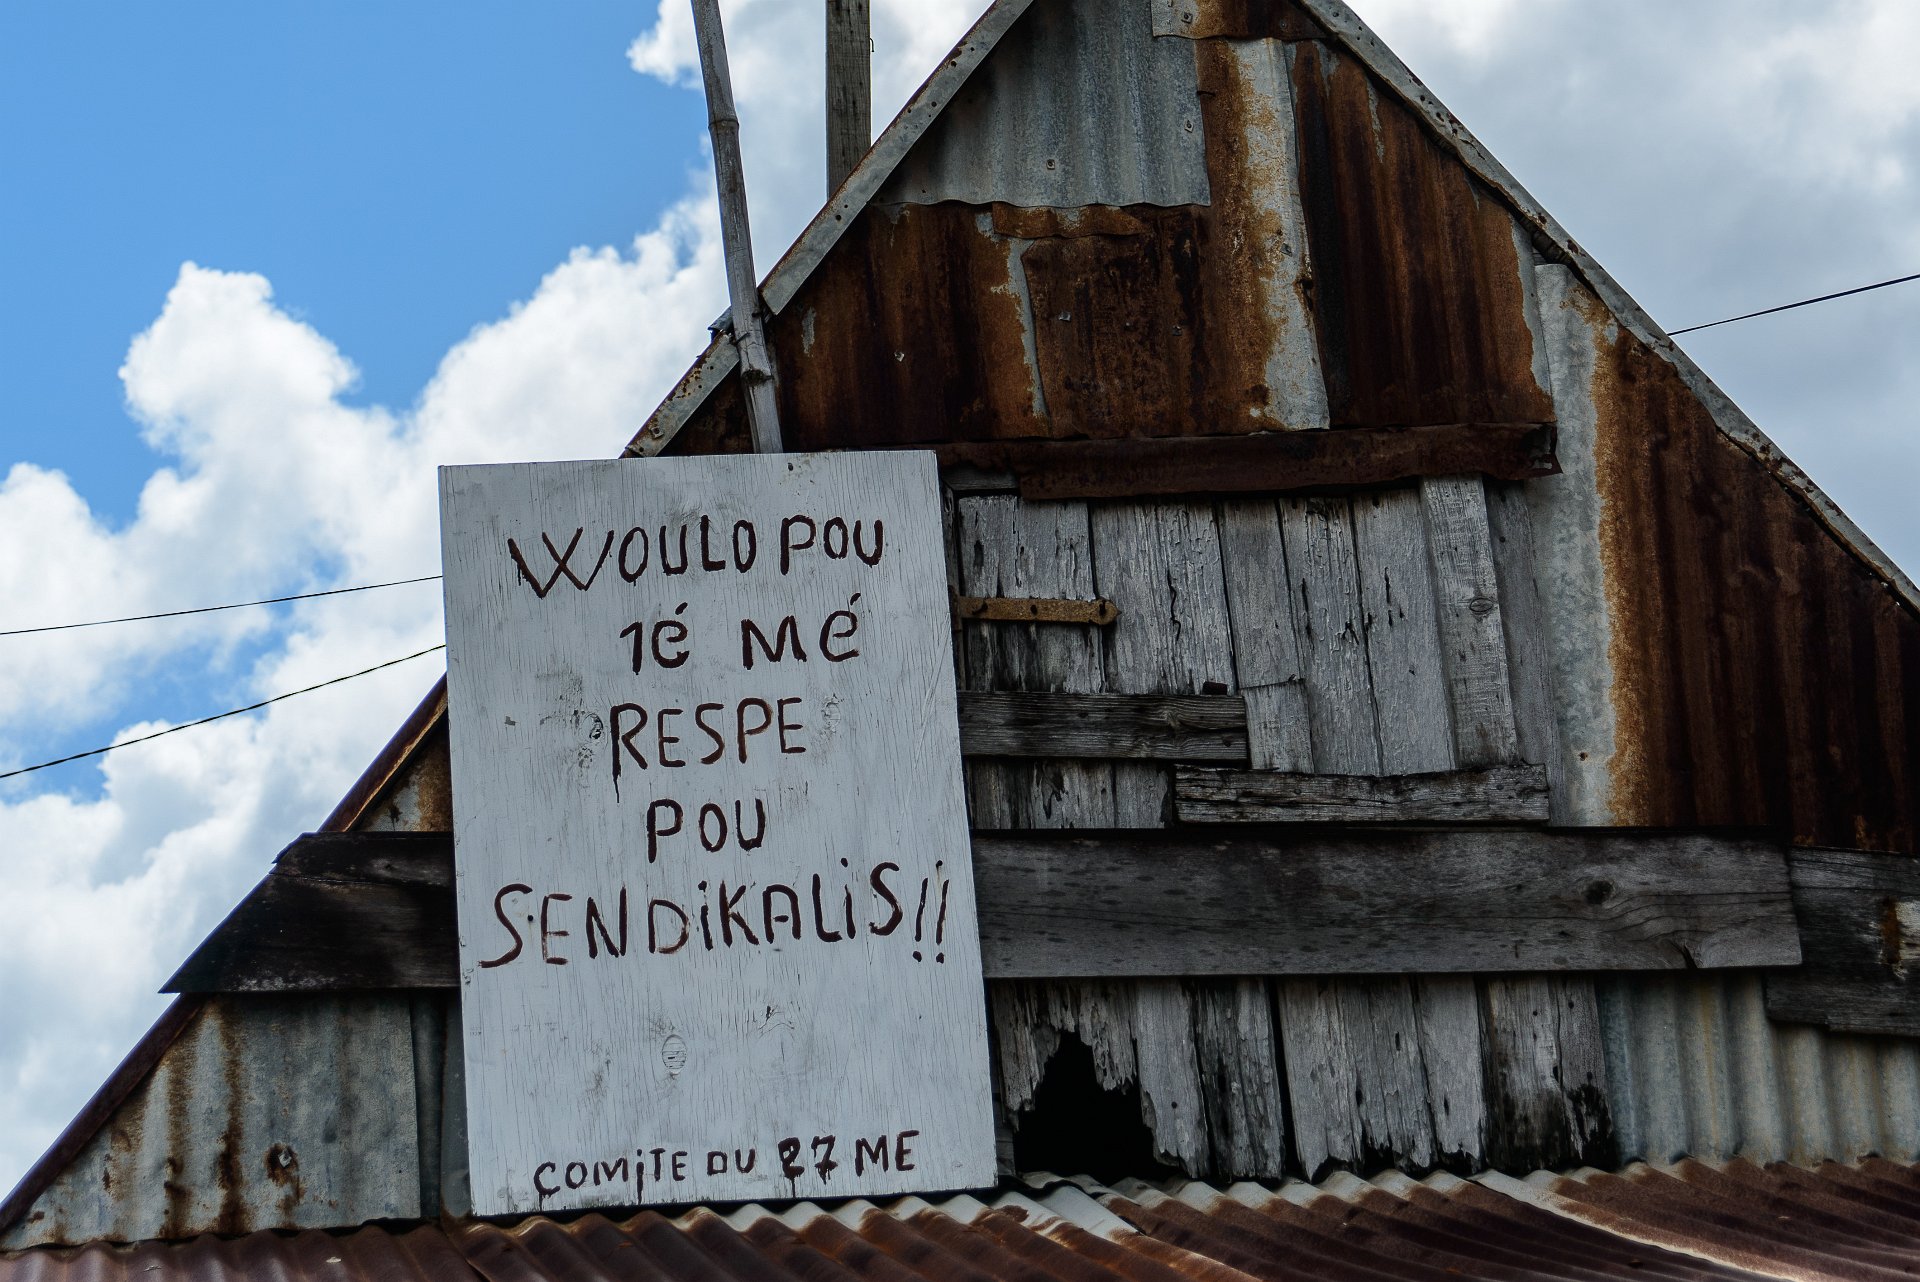 WOULO POU
1é Mé
RESPE
POU
SENDiKALiS!!
COMiTE DU 27 ME